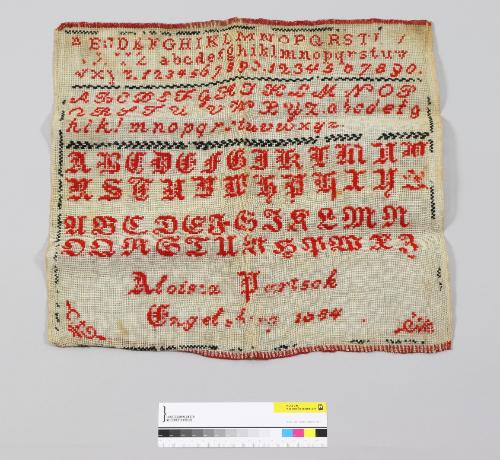 A B C D E F G H I K L M N O P Q R S T U
a b c d e f g h i k l m n o p q r s t u v
w x y z. 1 2 3 4 5 6 7 8 9 0. 1 2 3 4 5 6 7 8 9 0.
A B C D E F G H I K L M N O P
Q R S T U V W X Y Z. a b c d e f g
h i k l m n o p q r s t u v w x y z
A B C D E F G I K L M N
R S T U X Y
A B C D E F G I K L M N
O Q R S T U W X Z
Aloisia Partsch
Engelsberg 1884.